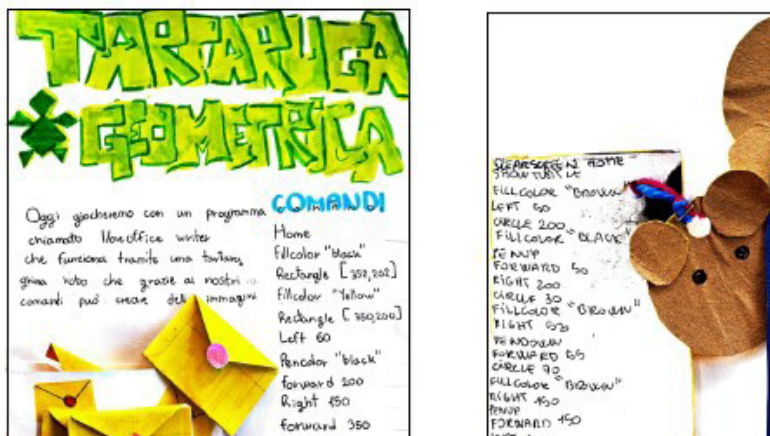 TARTARUGA
GEOMETRICA
Oggi giocheremo con un programma
chiamato libreoffice writer
che funziona tramite una tartaru
ghina robo che grazie ai nostri
comandi può creare dell immagini
COMANDI
Home
Fillcolor "black"
Rectangle [352,202]
Fillcolor "Yellow"
Rectangle [350,200]
Left 60
Pencolor "black"
forward 200
Right 150
forward 350
CLEARSCREEN HOME
SHOWTURTLE
FILLCOLOR "BROWN"
LEFT 50
CIRCLE 200
FILLCOLOR "BLACK"
PENUP
FORWARD 50
RIGHT 200
CIRCLE 30
FILLCOLOR "BROWN"
RIGHT
PENDOWN
FORWARD 55
CIRCLE 70
FILLCOLOR "BROWN"
RIGHT 150
PENUP
FORWARD 150